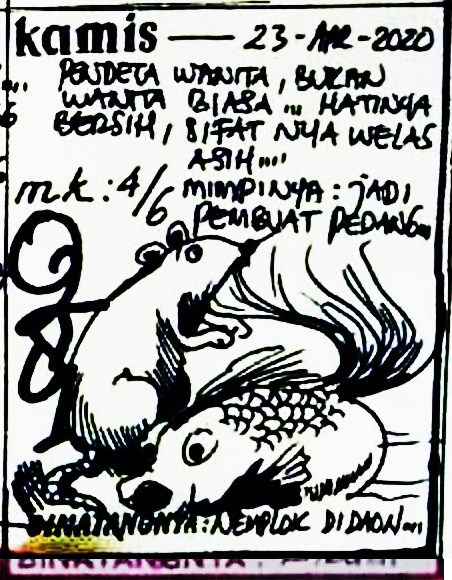 kamis — 23-APR-2020
PENDETA WANITA, BUKAN
WANITA BIASA... HATINYA
BERSIH, SIFATNYA WELAS
ASIH....
mk: 4/6 MIMPINYA: jADI
PEMBUAT PEDANG...
BINATANGNYA: NEMPLOK DIDAON...